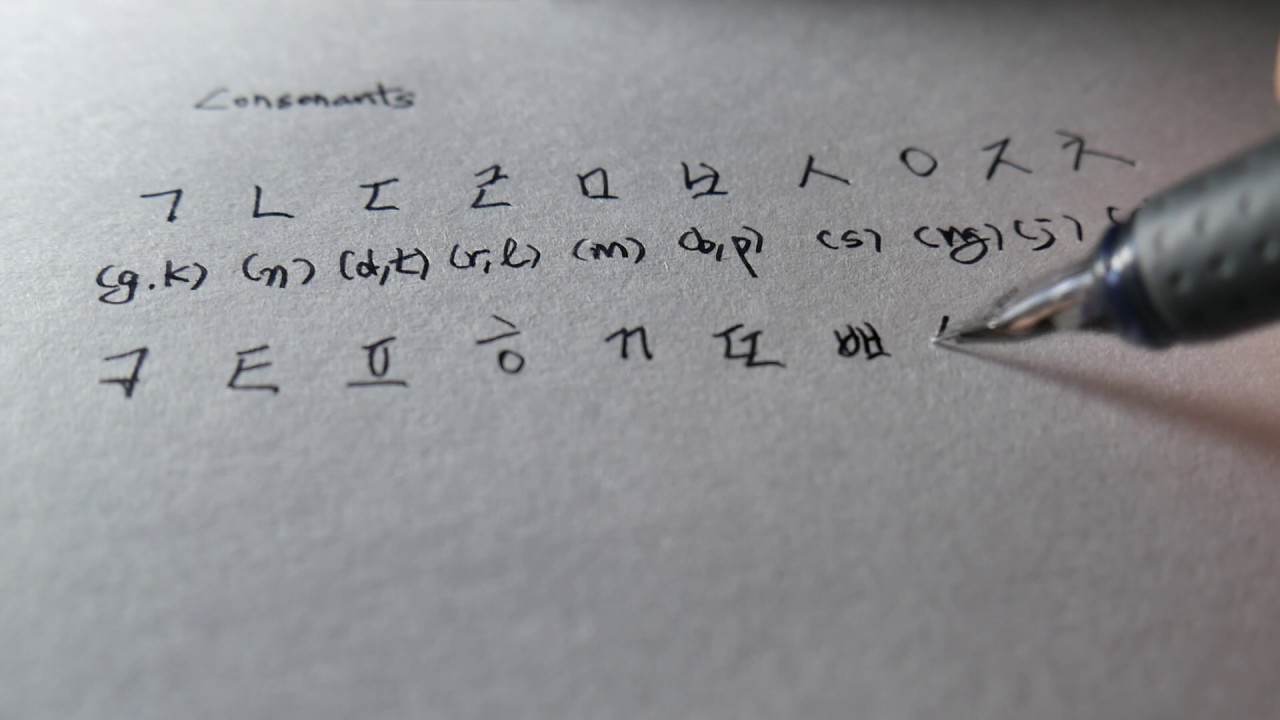 Consonants
ㄱ ㄴ ㄷ ㄹ ㅁ ㅂ ㅅ ㅇ ㅈ ㅊ
(g.k) (n) (d,t) (r,l) (m) (b,p) (s) (ng) (j) (
ㅋ ㅌ ㅍ ㅎ ㄲ ㄸ ㅃ